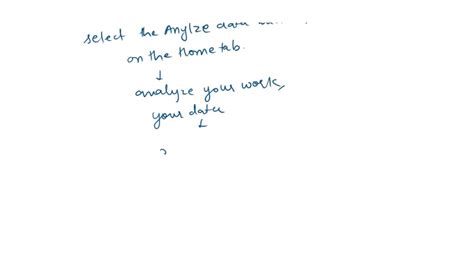 select the Anylze data
on the Home tab.
↓
analyze your work,
your data
↓